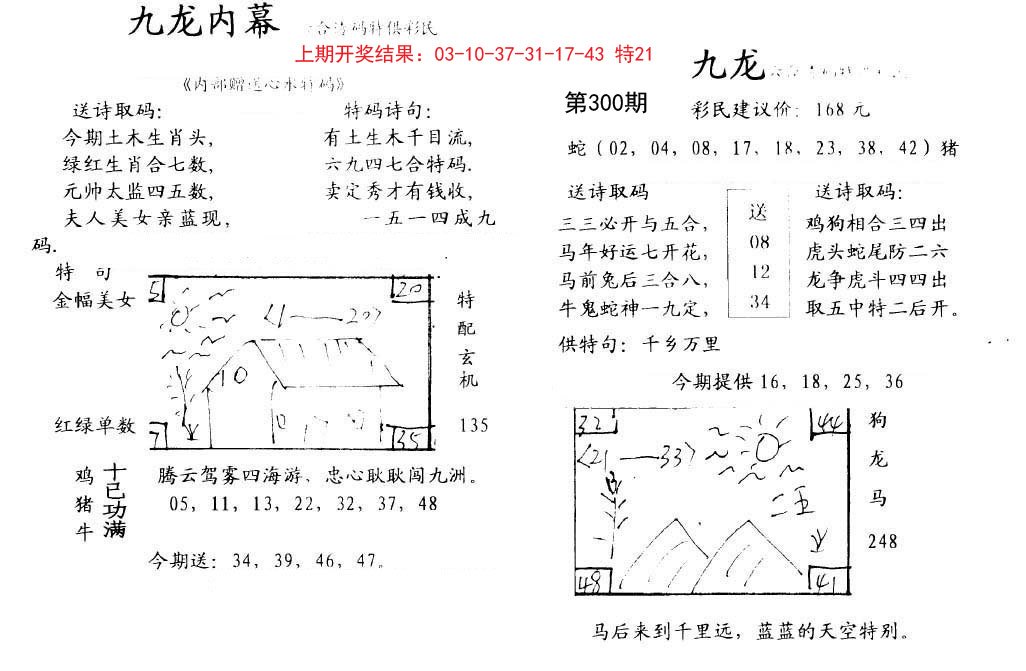 九龙内幕
上期开奖结果：03-10-37-31-17-43 特21
《内部赠送心水特码》
送诗取码：
今期土木生肖头，
绿红生肖合七数，
元帅太监四五数，
夫人美女亲蓝现，
码.
特码诗句：
有土生木千目流，
六九四七合特码.
卖定秀才有钱收，
一五一四成九
特 句
金幅美女
红绿单数
5
20
〈1——20〉
10
35
特
配
玄
机
135
鸡
猪
牛
十已功满
腾云驾雾四海游、忠心耿耿闯九洲。
05，11，13，22，32，37，48
今期送：34，39，46，47。
九龙
第300期
彩民建议价：168元
蛇（02，04，08，17，18，23，38，42）猪
送诗取码
三三必开与五合，
马年好运七开花，
马前兔后三合八，
牛鬼蛇神一九定，
送
08
12
34
送诗取码：
鸡狗相合三四出
虎头蛇尾防二六
龙争虎斗四四出
取五中特二后开。
供特句：千乡万里
今期提供16，18，25，36
32
44
〈21——33〉
48
41
狗
龙
马
248
马后来到千里远，蓝蓝的天空特别。